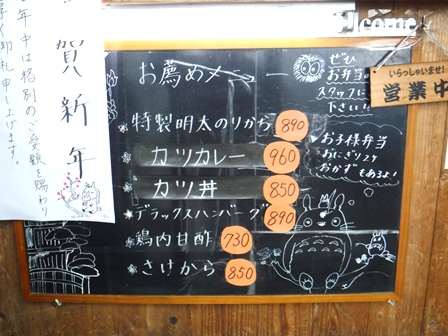 賀新年
年中は格別のご愛顧を賜わり
御礼申し上げます。
お薦めメニュー
ぜひ
お弁当
スタッフに
下さい!!
Welcome
いらっしゃいませ!
営業中
特製明太のりから 890
カツカレー 960
カツ丼 850
デラックスハンバーグ 890
鶏肉甘酢 730
さけから 850
お子様弁当
おにぎり2ケ
おかず もあるよ!